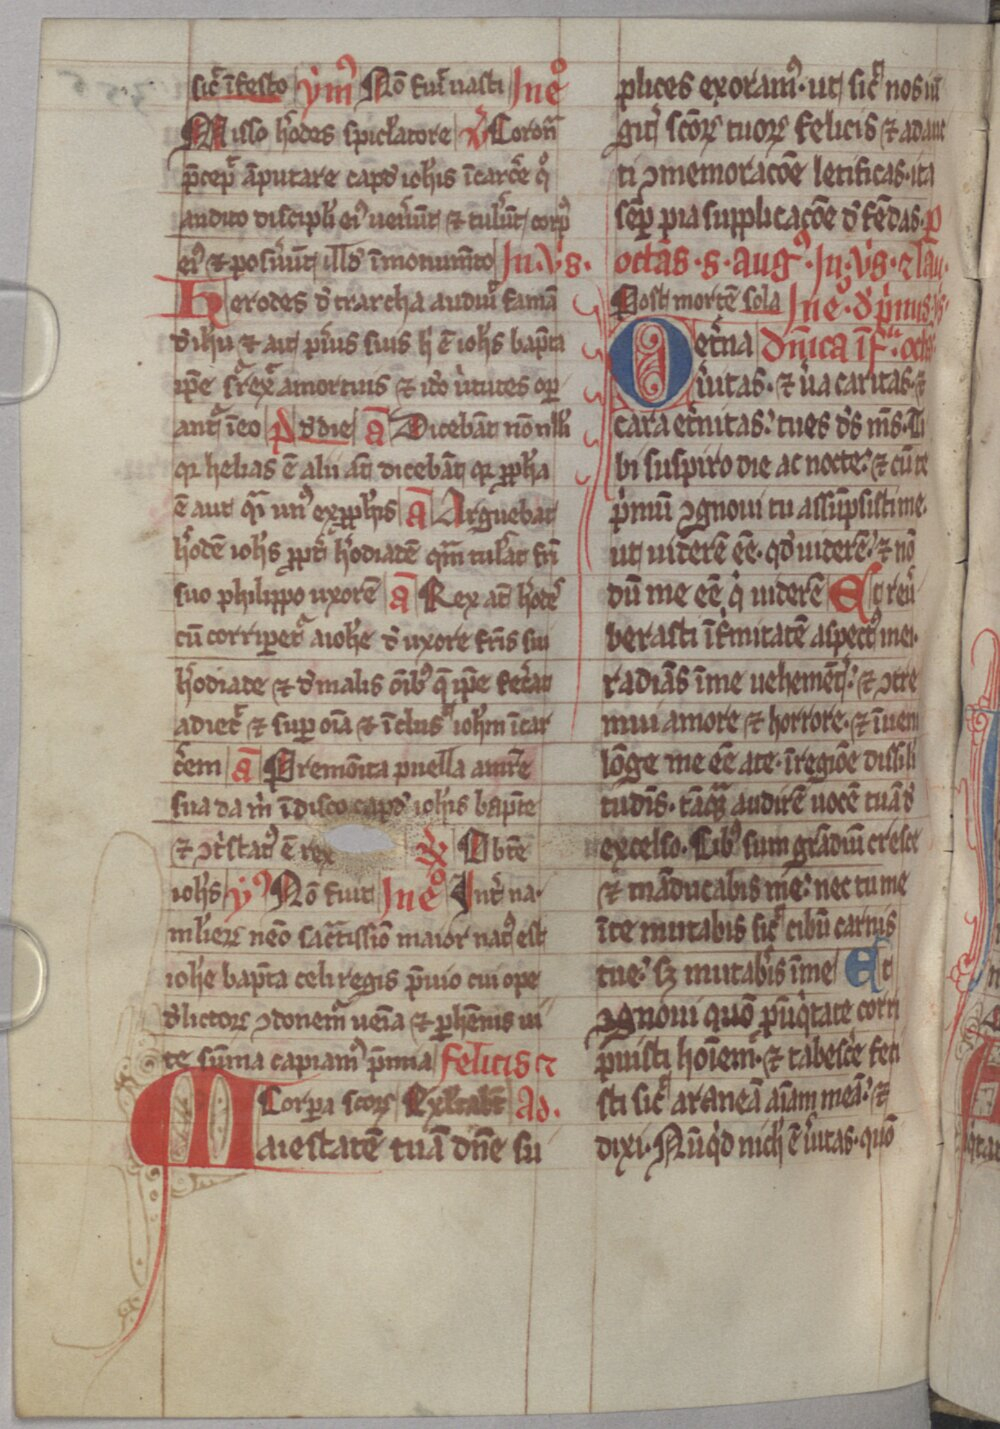 sic̄ ī festo ym̄ Nō fuit vasti In eu̅o
Misso h̓odes spiculatore v̓ Coron̄
p̄cep̄ āputare capđ ioh̄is ī carc̓e qͦ
audito discipl̓i ei⁹ uen̓ūt ⁊ tul̓ūt corp⁹
ei⁹ ⁊ posu̓ūt illđ ī monum̄to In. v̓s.
Herodes đ tetrarcha audiuͥt famā
đ ih̓u ⁊ ait pu̓is suis h̓ ē ioh̄s bapt̄a
ip̄e s̓rex̓ a mortuis ⁊ iđo v̓tutes op̄
ant̓ ī eo P đ die ā Dicebāt nōnulli
qꝛ helias ē alii aūt dicebāt qꝛ ꝓph̓a
ē aut qͣi un⁹ ex ꝓph̓is ā Arguebat
h̓odē ioh̄s ꝓpt̓ h̓odiadē qm̄ tul̓at fr̄i
suo philippo uxorē ā Rex aūt h̓odes
cū corriperet̓ a ioh̄e đ uxore fr̄is sui
h̓odiade ⁊ đ malis ōib⁹ q̄ ip̄e fec̓at
adiec̓ ⁊ super oīa ⁊ īclus̓ ioh̄m ī car
c̓em ā Premōita puella a mr̄e
sua da m̓ ī disco capđ ioh̄is bapt̄e
⁊ ꝯt̓stat⁹ ē rex ꝶ Obt̄e
ioh̄s y⁹ Nō fuit In eu̅o Int̓ na
mulieꝝ nēo sāctissīo maior nat⁹ est
ioh̄e bapt̄a celi regis p̓uio cui⁹ ope
đlictoꝝ ꝯdonem̓ ueīa ⁊ perhēnis ui
te sūma capiam⁹ p̄mia Felicis ⁊
Corpora sc̄oꝝ Exultabūt Ad.
Maiestatē tuā dn̄e su
plices exoram⁹. ut sic̓ nos iu
git̓ sc̄oꝝ tuoꝝ felicis ⁊ adauc
ti ꝯmemoracōe letificas. ita
sēp̄ pia supplicacōe đfēdas. P
octas. s. aug⁹. In. v̓s. ⁊ lau.
Post mortē sola In eu̅o. đ p̓mis v̓s.
O et̓na dn̄ica īf̓. octas
u̓itas. ⁊ u̓a caritas. ⁊
cara et̓nitas: tu es đs m̄s. Ti
bi suspiro die ac nocte: ⁊ cū te
p̓mū ꝯgnoui tu assūpsisti me.
ut uiderē eē. qđ uiderē: ⁊ nō
dū me eē q̓ uiderē Et reu̓
berasti īfirmitatē aspect⁹ mei.
radiās ī me uehemēt̓: ⁊ ꝯtre
mui amore ⁊ horrore. ⁊ īueni
lōge me eē a te. ī regiōe dissīli
tudīs. tāqͣ audirē uocē tuā đ
excelso. Cib⁹ sum grādiū cresce
⁊ māducabis me: nec tu me
ī te mutabis sic̓ cibū carnis
tue: sꝫ mutab̓is ī me Et
ꝯgnoui quō p̄ iniq̓tate corri
puisti hoīem. ⁊ tabesc̓e feci
sti sic̓ araneā aīam meā: ⁊
dixi. Nūq̓d nich̓ ē u̓itas. quō